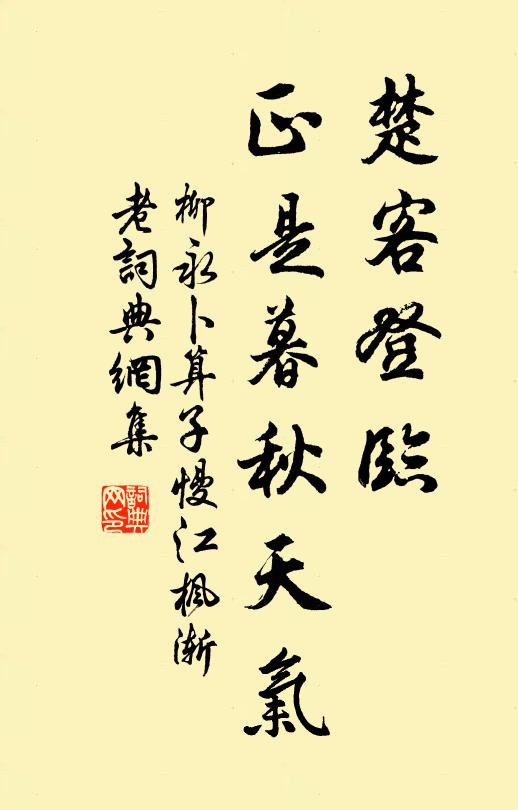 楚客登臨
正是暮秋天氣
柳永卜算子慢江楓漸
老詞典網集
詞典網印